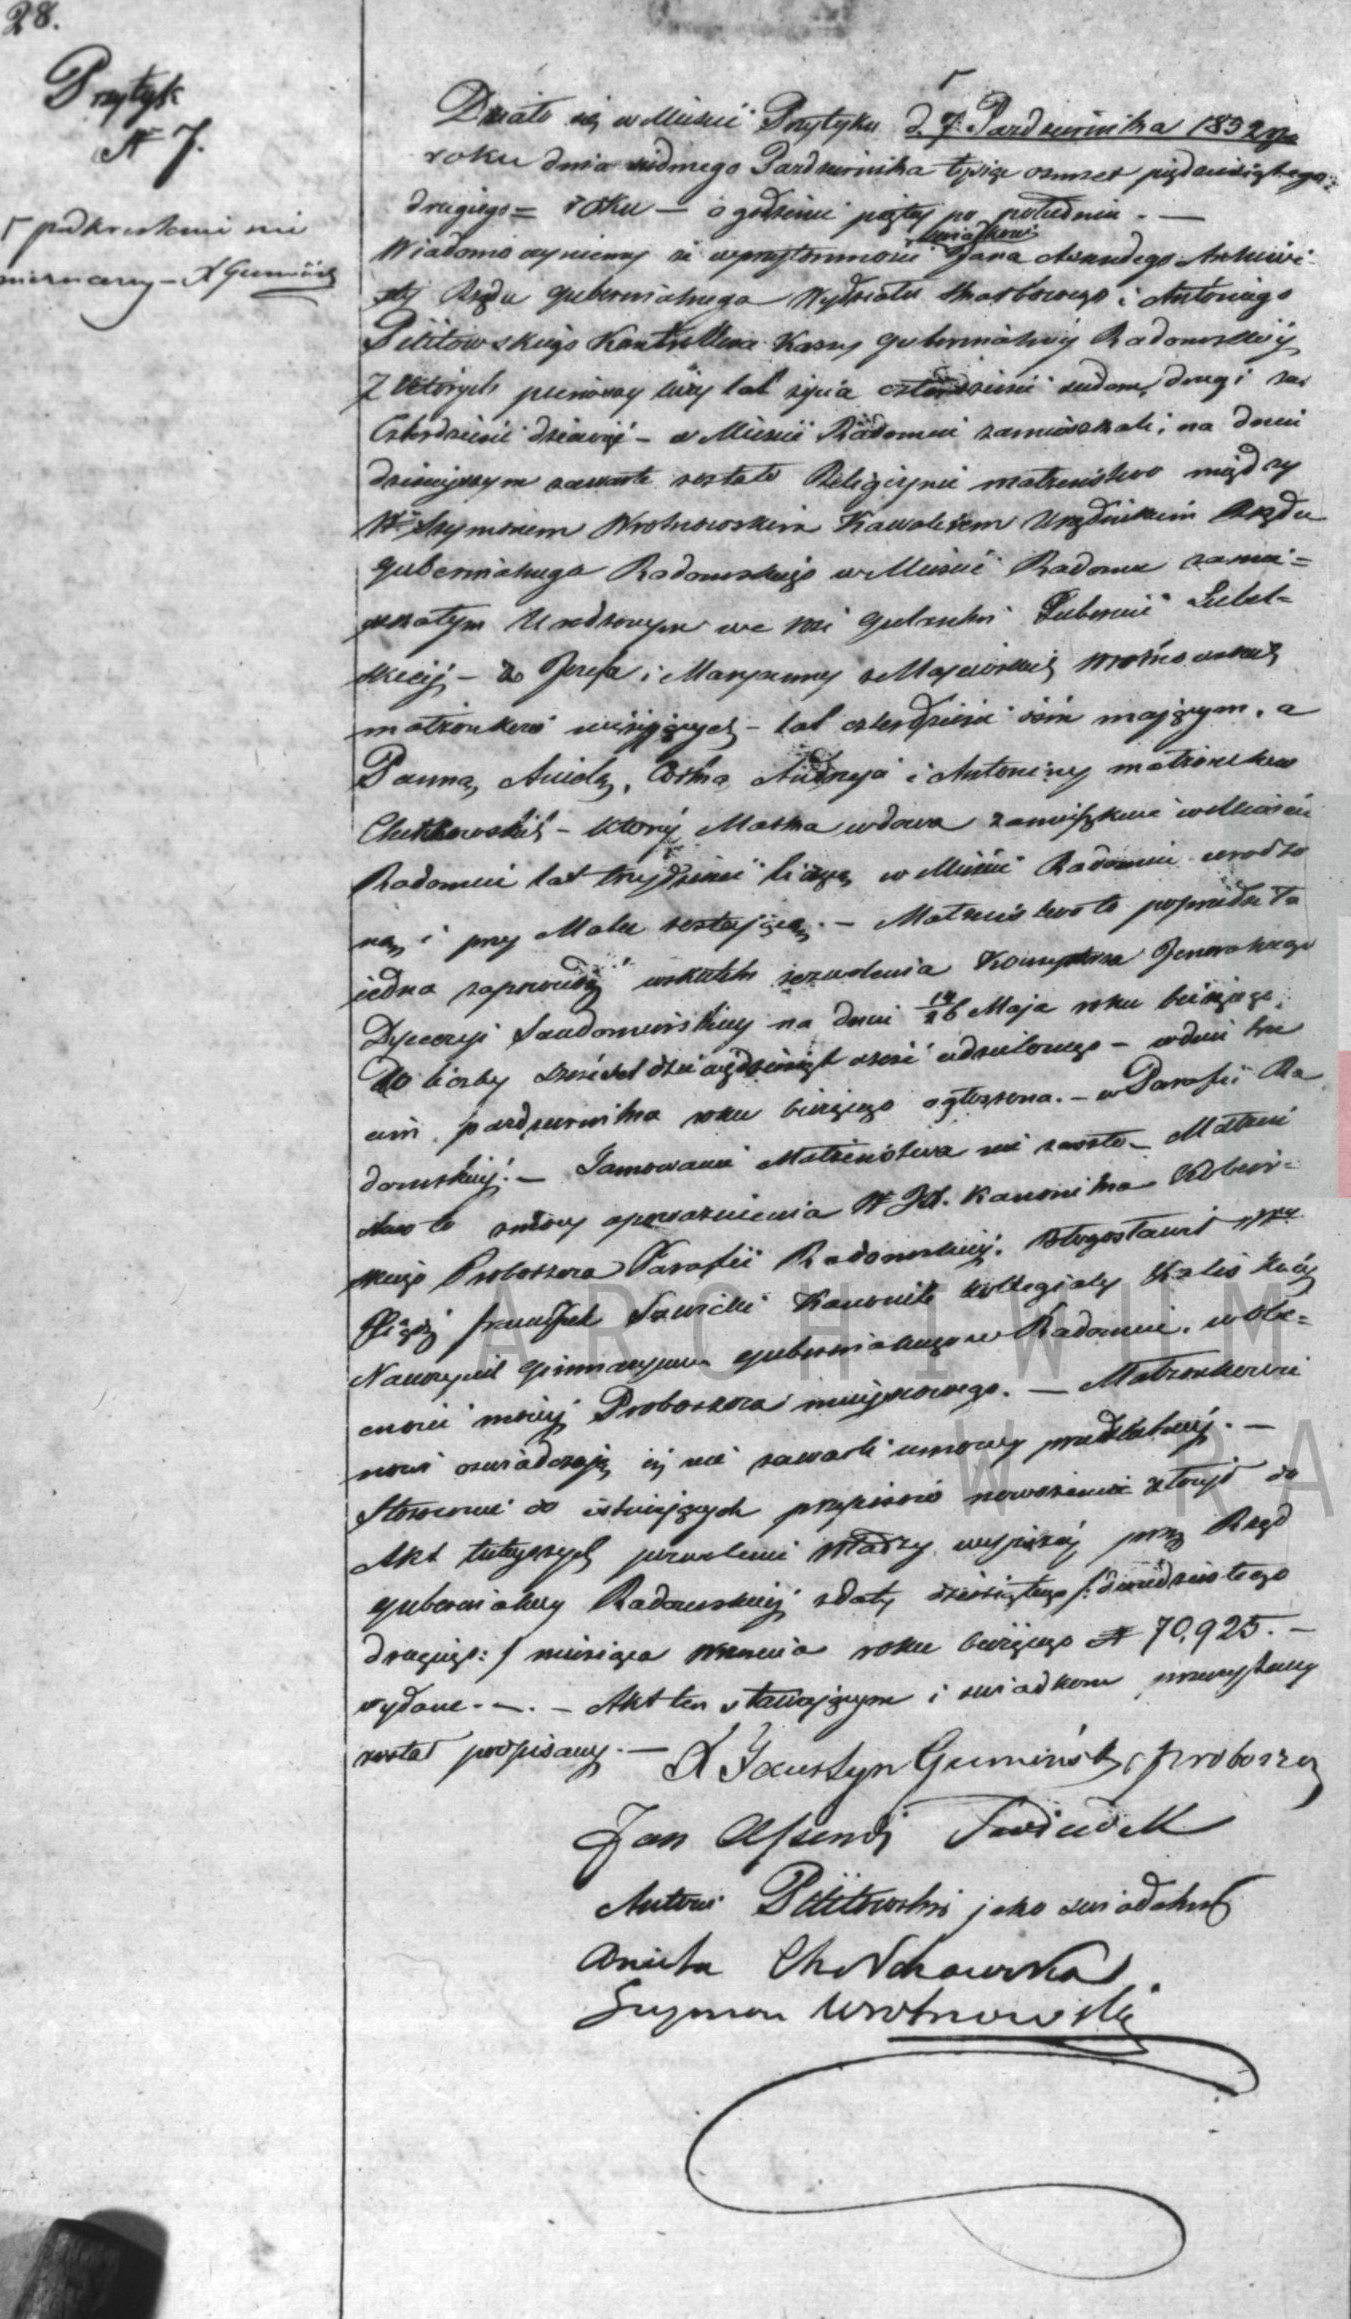 28.
Przytyk
N 7.
Γ podkreslenie nie
nieznaczy – X Gumiński
Działo się w Mieście Przytyku d. 7. Pazdziernika 1852go
roku dnia siódmego Pazdziernika tysiąc osmset pięćdziesiątego
drugiego = roku – o godzinie piątej po południu. –
świadków
Wiadomo czyniemy że w przytomności Jana Assendego Archiwi-
sty Rządu Gubernialnego Wydziału Skarbowego i Antoniego
Petitowskiego Kontrollera Kassy Gubernialnej Radomskiej
z których pierwszy liczy lat życia czterdzieści siedem, drugi zaś
Czterdzieści dziewięć – w Mieście Radomiu zamieszkali; na dniu
dzisiejszym zawarte zostało Religijnie małżeństwo między
Wm Szymonem Wrotnowskim Kawalerem Urzędnikiem Rządu
Gubernialnego Radomskiego w Mieście Radomiu zamie=
szkałym Urodzonym we wsi Gubernii Lubel=
skiej – z Józefa i Maryanny z Majewskich Wrotnowskich
małżonków nieżyjących – lat czterdzieści ośm mającym, a
Panną Anielą, Córką Andrzeja i Antoniny małżonków
Chutkowskich – której Matka wdowa zamieszkuje w Mieście
Radomiu lat trzydzieści liczącą w Mieście Radomiu urodzo
ną i przy Matce zostającą. – Małżeństwo to poprzedziła
jedna zapowiedź wskutek zezwolenia Konsystorza Jeneralnego
Dyecezyi Sandomirskiey na dniu 14/26 Maja roku bieżącego
do liczby sześćset dziewięćdziesiąt sześć udzielonego – w dniu trze
cim pazdziernika roku bieżącego ogłoszona. – w Parafii Ra
domskiej. – Tamowanie Małżeństwa nie zaszło – Małżeń
stwo to z mocy upoważnienia W JX. Kanonika Kobier=
skiego Proboszcza Parafii Radomskiej. Błogosławił
Xiądz Franciszek Sawicki Kanonik Kollegiaty Kaliskiej
Nauczyciel Gimnazyum Gubernialnego w Radomiu, w obe=
cności mojej Proboszcza miejscowego. – Małżonkowie
nowi oświadczają iż nie zawarli umowy przedślubnej. –
Stosownie do istniejących przepisów nowożeniec złożył do
Akt tutejszych pozwolenie Władzy wyższej przez Rząd
Gubernialny Radomski z daty dziesiątego /: dwudziestego
drugiego: / miesiąca września roku bieżącego N 70,925. –
wydane. –. – Akt ten stawającym i świadkom przeczytany
został podpisany. – X Faustyn Gumiński proboszcz
Jan Assendi Świadek
Antoni Petitowski jako świadek
Aniela Chutkowska
Szymon Wrotnowski
ARCHIWUM
W RA